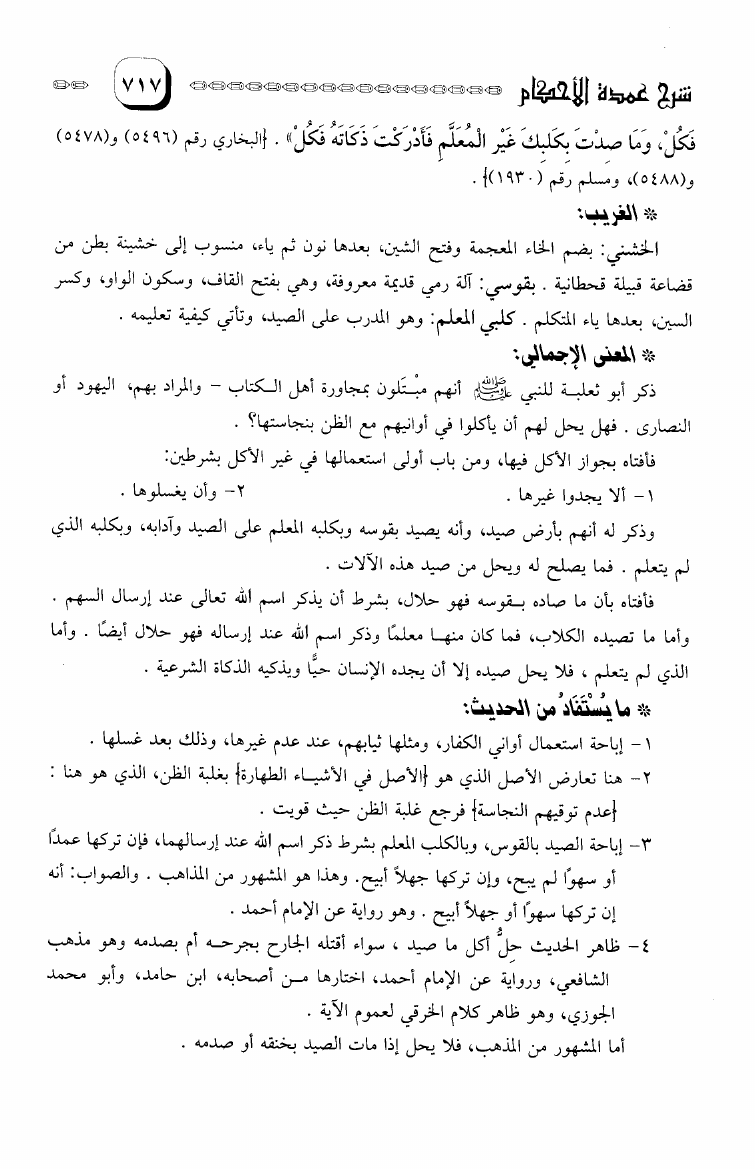 شرح عمدة الأحكام ٧١٧
فَكُلْ، وَمَا صِدْتَ بِكَلبِكَ غَيْرِ الْمُعَلَّمِ فَأَدْرَكْتَ ذَكَاتَهُ فَكُلْ» . {البخاري رقم (٥٤٩٦) و(٥٤٧٨)
و(٥٤٨٨)، ومسلم رقم (١٩٣٠)} .
* الغريب:
الخشني: بضم الخاء المعجمة وفتح الشين، بعدها نون ثم ياء، منسوب إلى خشينة بطن من
قضاعة قبيلة قحطانية . بقوسي: آلة رمي قديمة معروفة، وهي بفتح القاف، وسكون الواو، وكسر
السين، بعدها ياء المتكلم . كلبي المعلم: وهو المدرب على الصيد، وتأتي كيفية تعليمه .
* المعنى الإجمالي:
ذكر أبو ثعلبة للنبي ﷺ أنهم مبْتَلون بمجاورة أهل الكتاب – والمراد بهم، اليهود أو
النصارى . فهل يحل لهم أن يأكلوا في أوانيهم مع الظن بنجاستها؟ .
فأفتاه بجواز الأكل فيها، ومن باب أولى استعمالها في غير الأكل بشرطين:
١– ألا يجدوا غيرها . ٢– وأن يغسلوها .
وذكر له أنهم بأرض صيد، وأنه يصيد بقوسه وبكلبه المعلم على الصيد وآدابه، وبكلبه الذي
لم يتعلم . فما يصلح له ويحل من صيد هذه الآلات .
فأفتاه بأن ما صاده بقوسه فهو حلال، بشرط أن يذكر اسم الله تعالى عند إرسال السهم .
وأما ما تصيده الكلاب، فما كان منها معلمًا وذكر اسم الله عند إرساله فهو حلال أيضًا . وأما
الذي لم يتعلم ، فلا يحل صيده إلا أن يجده الإنسان حيًّا ويذكيه الذكاة الشرعية .
* ما يُسْتَفَادُ من الحديث:
١– إباحة استعمال أواني الكفار، ومثلها ثيابهم، عند عدم غيرها، وذلك بعد غسلها .
٢– هنا تعارض الأصل الذي هو {الأصل في الأشياء الطهارة} بغلبة الظن، الذي هو هنا :
{عدم توقيهم النجاسة} فرجع غلبة الظن حيث قويت .
٣– إباحة الصيد بالقوس، وبالكلب المعلم بشرط ذكر اسم الله عند إرسالهما، فإن تركها عمدًا
أو سهوًا لم يبح، وإن تركها جهلاً أبيح. وهذا هو المشهور من المذاهب . والصواب: أنه
إن تركها سهوًا أو جهلاً أبيح . وهو رواية عن الإمام أحمد .
٤– ظاهر الحديث حِلُّ أكل ما صيد ، سواء أقتله الجارح بجرحه أم بصدمه وهو مذهب
الشافعي، ورواية عن الإمام أحمد، اختارها من أصحابه، ابن حامد، وأبو محمد
الجوزي، وهو ظاهر كلام الخرقي لعموم الآية .
أما المشهور من المذهب، فلا يحل إذا مات الصيد بخنقه أو صدمه .